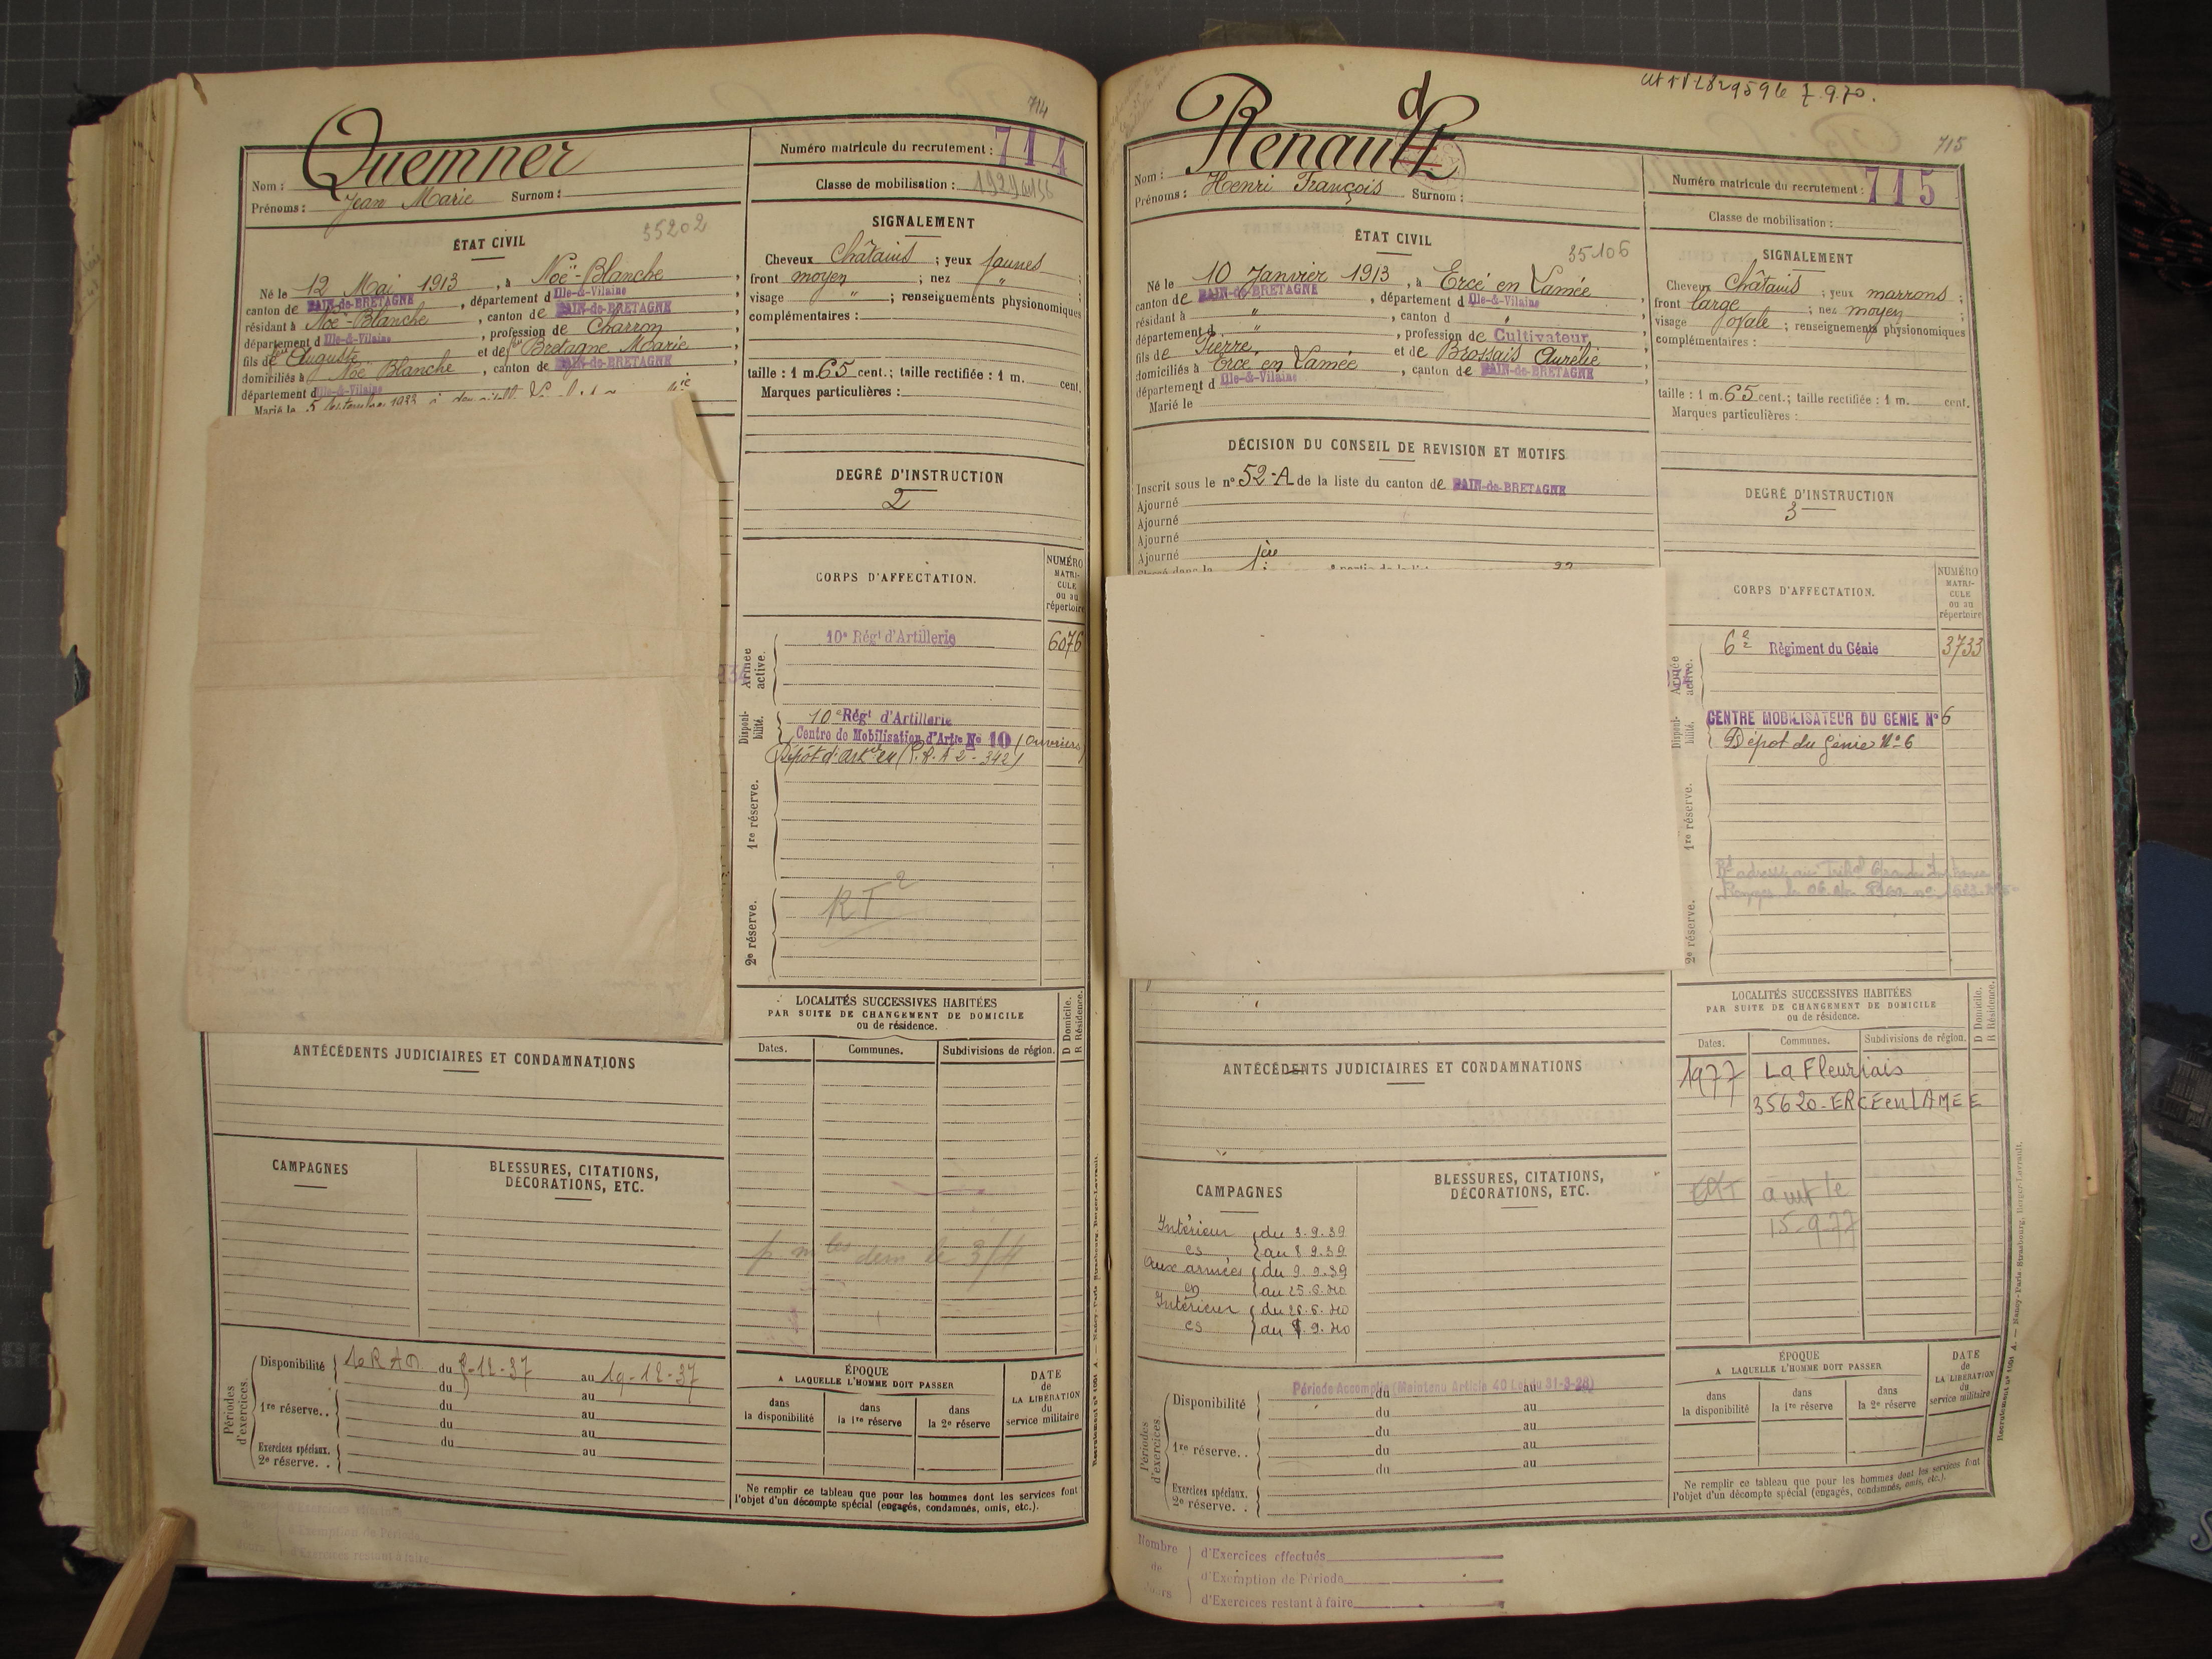 714
Quemner
Nom :
Prénoms : Jean Marie Surnom :
Numéro matricule du recrutement : 714
Classe de mobilisation : 1929
ÉTAT CIVIL
35202
Né le 12 Mai 1913, à Noë-Blanche,
canton de BAIN-de-BRETAGNE, département d Ille-&-Vilaine,
résidant à Noë-Blanche, canton de BAIN-de-BRETAGNE,
département d Ille-&-Vilaine, profession de Charron,
fils de feu Auguste et de feu Bretagne Marie,
domiciliés à Noë Blanche, canton de BAIN-de-BRETAGNE,
département d Ille-&-Vilaine
Marié le 5
SIGNALEMENT
Cheveux Châtains ; yeux jaunes ;
front moyen ; nez " ;
visage " ; renseignements physionomiques
complémentaires :
taille : 1 m. 65 cent. ; taille rectifiée : 1 m. cent.
Marques particulières :
DEGRÉ D'INSTRUCTION
2
CORPS D'AFFECTATION.
NUMÉRO MATRI-CULE ou au répertoire
Armée active.
10e Régt d'Artillerie 6076
Disponi-bilité.
10e Régt d'Artillerie
Centre de Mobilisation d'Artie No 10 (Ouvriers)
Dépôt d'Art (P.R.A 2-342)
1re réserve.
2e réserve.
RT2
LOCALITÉS SUCCESSIVES HABITÉES
PAR SUITE DE CHANGEMENT DE DOMICILE
ou de résidence.
D Domicile.
R Résidence.
Dates. Communes. Subdivisions de région.
le 3/4
ANTÉCÉDENTS JUDICIAIRES ET CONDAMNATIONS
CAMPAGNES
BLESSURES, CITATIONS,
DÉCORATIONS, ETC.
Périodes d'exercices.
Disponibilité du -12-37 au 19-12-37
du au
1re réserve.. du au
du au
Exercices spéciaux. du au
2e réserve. .
ÉPOQUE
A LAQUELLE L'HOMME DOIT PASSER
dans la disponibilité
dans la 1re réserve
dans la 2e réserve
DATE de LA LIBÉRATION du service militaire
Ne remplir ce tableau que pour les hommes dont les services font
l'objet d'un décompte spécial (engagés, condamnés, omis, etc.).
d'Exemption de Période
d'Exercices restant à faire
7.9.70.
715
Renauld
Nom :
Prénoms : Henri François Surnom :
Numéro matricule du recrutement : 715
Classe de mobilisation :
ÉTAT CIVIL
35106
Né le 10 Janvier 1913, à Ercé en Lamée,
canton de BAIN-de-BRETAGNE, département d Ille-&-Vilaine,
résidant à ", canton d ",
département d ", profession de Cultivateur,
fils de Pierre et de Brossais Aurélie,
domiciliés à Ercé en Lamée, canton de BAIN-de-BRETAGNE,
département d Ille-&-Vilaine
Marié le
SIGNALEMENT
Cheveux Châtains ; yeux marrons ;
front large ; nez moyen ;
visage ovale ; renseignements physionomiques
complémentaires :
taille : 1 m. 65 cent. ; taille rectifiée : 1 m. cent.
Marques particulières :
DÉCISION DU CONSEIL DE REVISION ET MOTIFS
Inscrit sous le no 52-A de la liste du canton de BAIN-de-BRETAGNE
Ajourné
Ajourné
Ajourné
Ajourné
DEGRÉ D'INSTRUCTION
3
CORPS D'AFFECTATION.
NUMÉRO MATRI-CULE ou au répertoire
Armée active.
6e Régiment du Génie 3733
Disponi-bilité.
CENTRE MOBILISATEUR DU GENIE No 6
Dépot du Génie No 6
1re réserve.
2e réserve.
LOCALITÉS SUCCESSIVES HABITÉES
PAR SUITE DE CHANGEMENT DE DOMICILE
ou de résidence.
D Domicile.
R Résidence.
Dates. Communes. Subdivisions de région.
1977 La Fleuriais
35620-ERCE en LAMEE
15-9-77
ANTÉCÉDENTS JUDICIAIRES ET CONDAMNATIONS
CAMPAGNES
BLESSURES, CITATIONS,
DÉCORATIONS, ETC.
Intérieur du 3.9.39
CS au 8 9.39
Aux armées du 9.9.39
en au 25.6.40
Intérieur du 26.6.40
CS au 8.9.40
Périodes d'exercices.
Disponibilité du au
Période Accomplie (Maintenu Article 40 Loi du 31-3-28)
du au
du au
1re réserve.. du au
du au
Exercices spéciaux.
2e réserve. .
ÉPOQUE
A LAQUELLE L'HOMME DOIT PASSER
dans la disponibilité
dans la 1re réserve
dans la 2e réserve
DATE de LA LIBÉRATION du service militaire
Ne remplir ce tableau que pour les hommes dont les services font
l'objet d'un décompte spécial (engagés, condamnés, omis, etc.).
Nombre de Jours
d'Exercices effectués
d'Exemption de Période
d'Exercices restant à faire